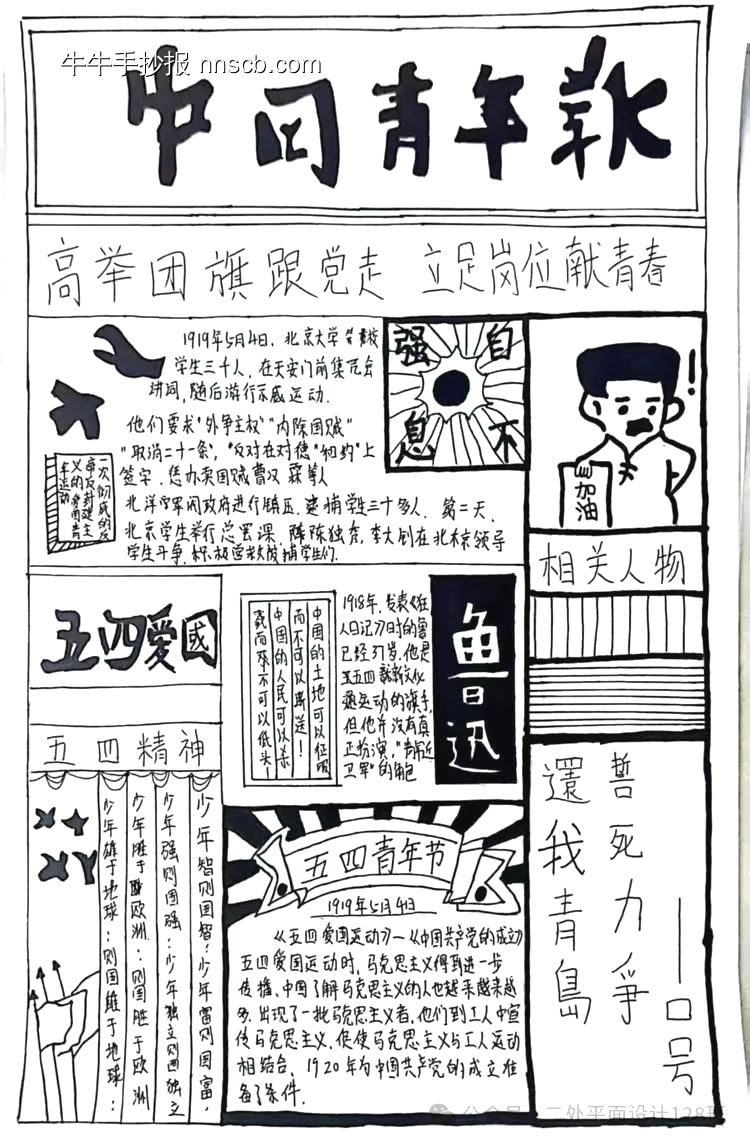 牛牛手抄报 nnscb.com
中国青年报
高举团旗跟党走 立足岗位献青春
1919年5月4日、北京大学等高校
学生三千人，在天安门前集
讲词，随后游行示威运动.
他们要求"外争主权""内除国贼"
"取消二十一条"，"反对在对德"和约"上
签字
北洋军阀政府进行镇压、逮捕学生三十多人、第二天、
北京学生举行总罢课、陈独秀，李大钊在北京领导
学生斗争，积极营救被捕学生们.
一次彻底的反
帝反封建主
义的爱国青
年运动
自
强
不
息
加油
相关人物
五四爱國
五四精神
中国的土地可以征服
而不可以断送！
中国的人民可以杀
戮而不可以低头！
1918年，发表《狂
人日记》时的鲁
已经37岁、他是
五四新文化
运动的旗手，
但他并没有真
正扮演，"青
卫军"的角色
鲁迅
少年智则国智：少年富则国富：
少年强则国强：少年独立则国独立
少年胜于欧洲：则国胜于欧洲
少年雄于地球：则国雄于地球：
五四青年节
1919年5月4日
《五四爱国运动》—《中国共产党的成立》
五四爱国运动时，马克思主义得到进一步
传播、中国了解马克思主义的人也越来越来越
多，出现了一批马克思主义者，他们到工人中宣
传马克思主义，促使马克思主义与工人运动
相结合，1920年为中国共产党的成立准
备了条件.
誓死力争
還我青島
——口号
公众号 二外平面设计128班